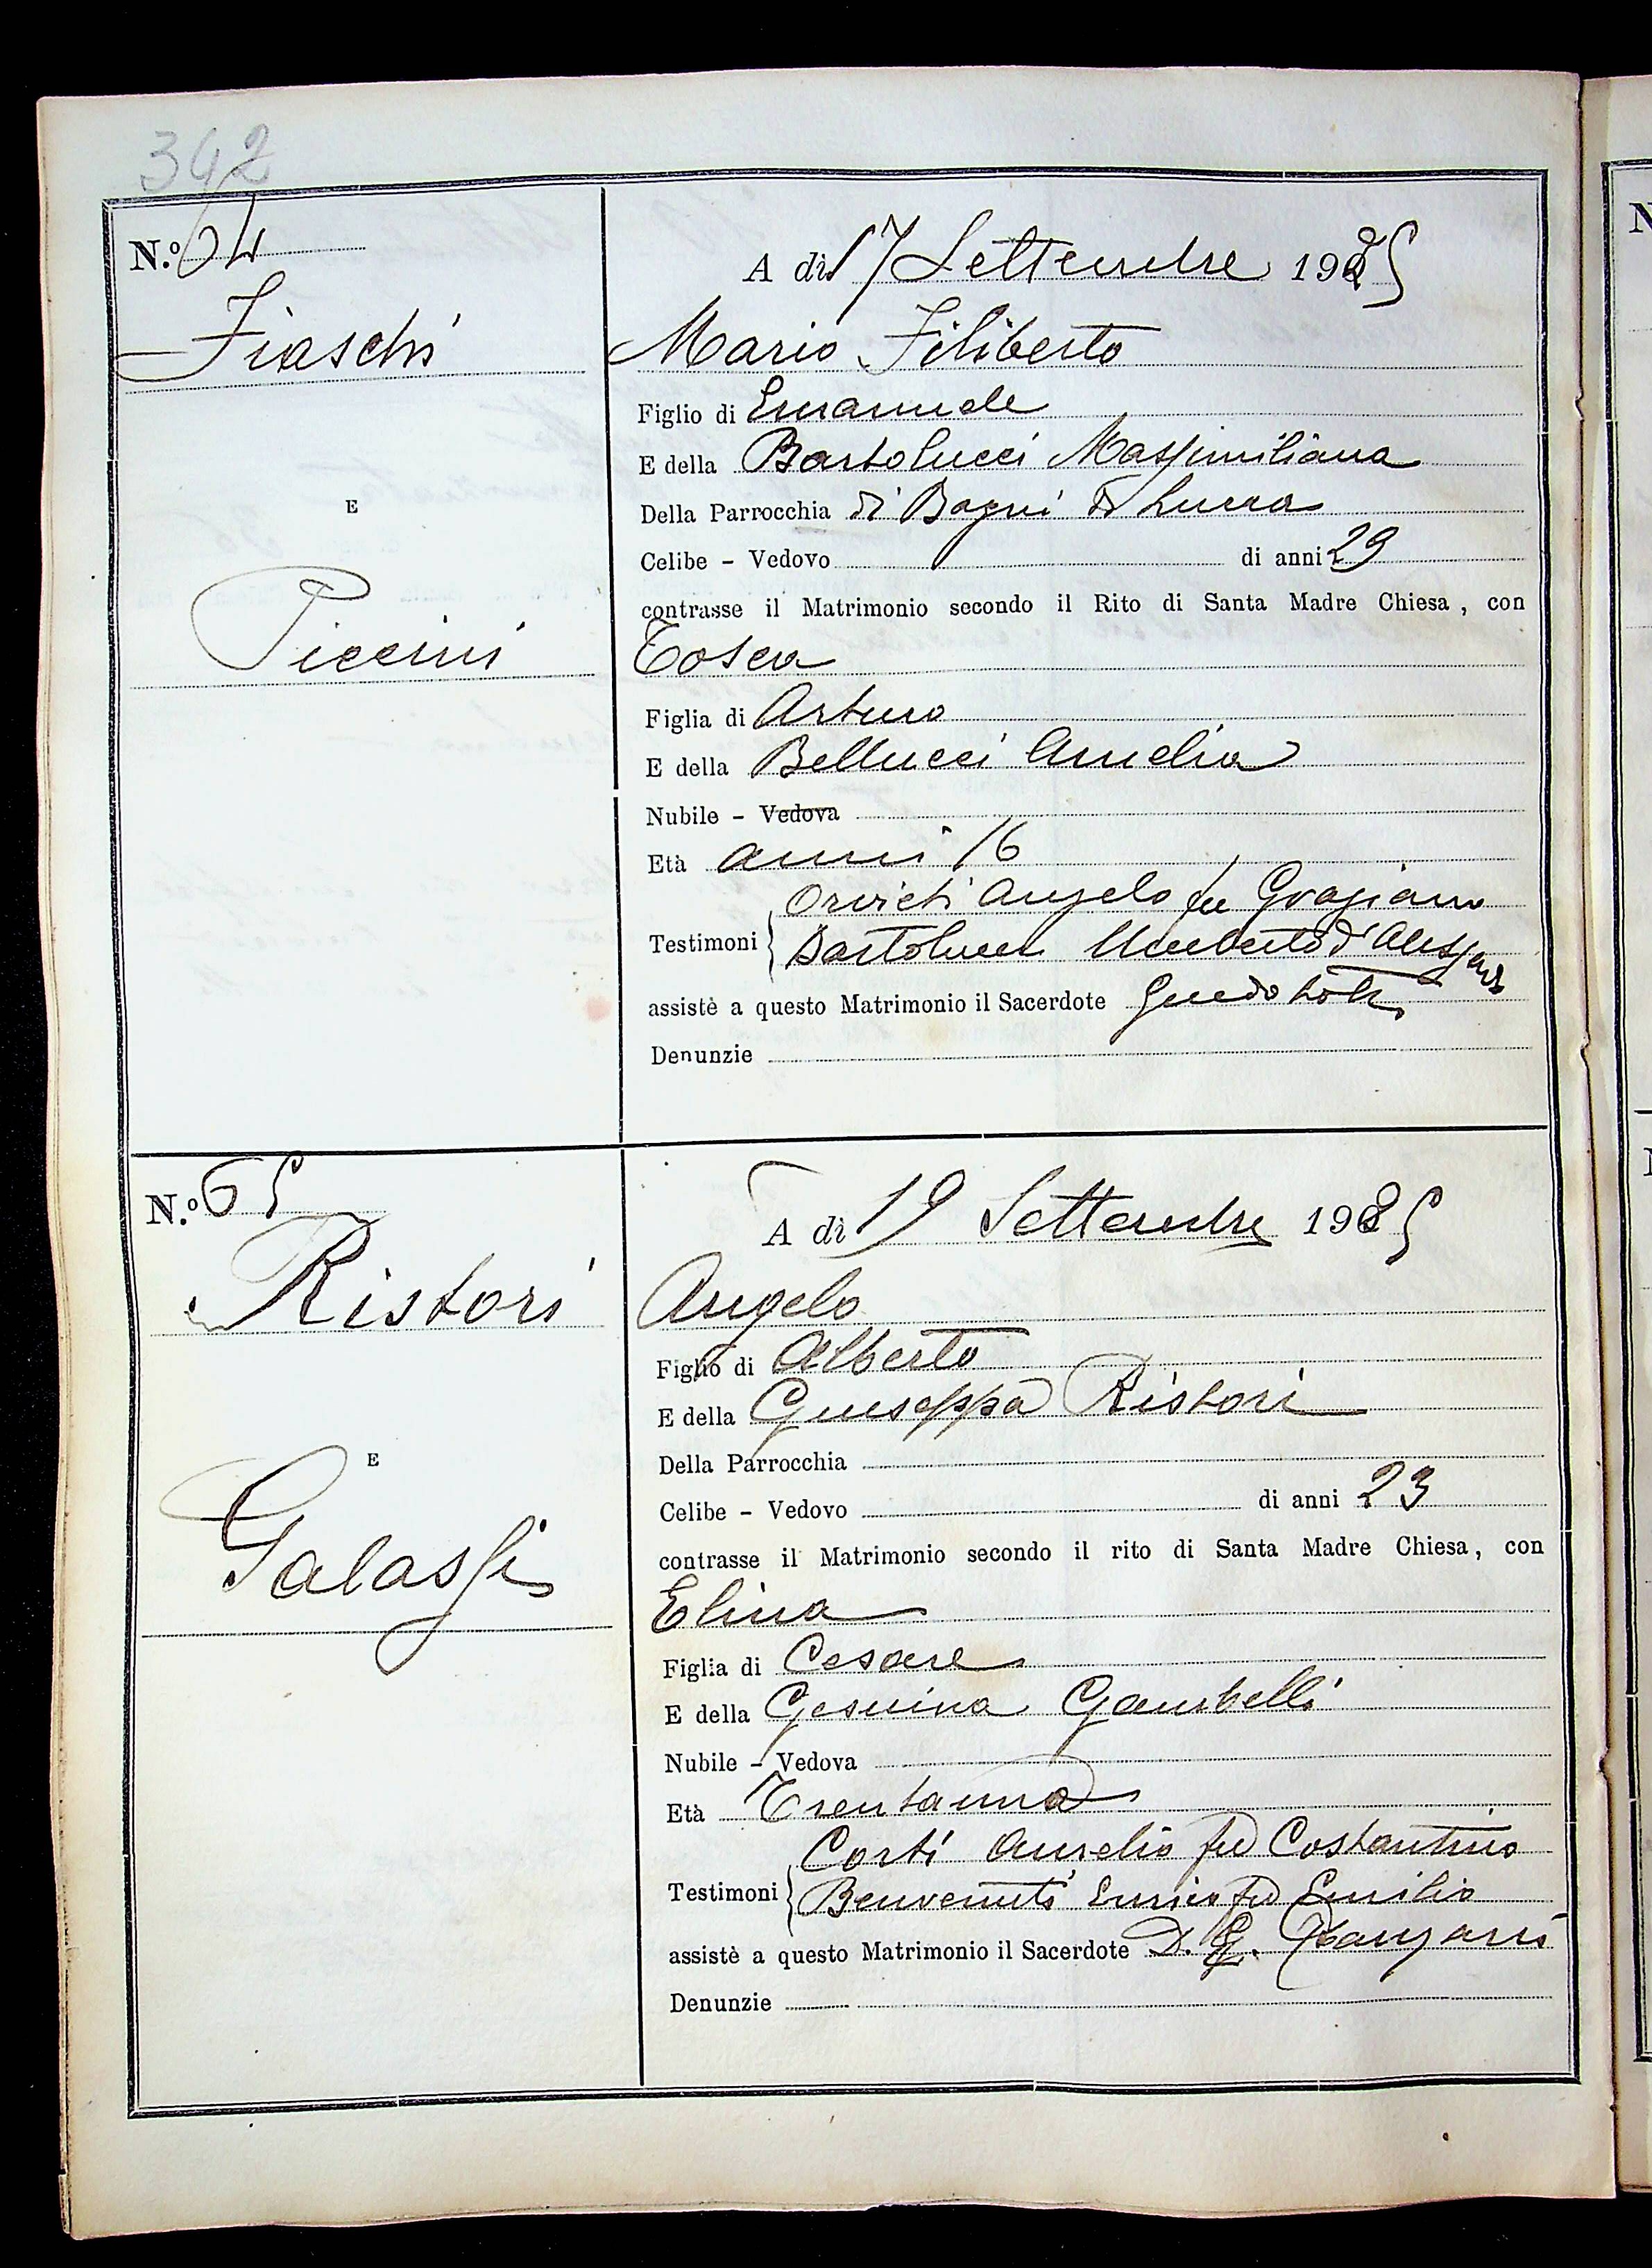 342
N.º 64
A dì 17 Settembre 1925
Fiaschi
Mario Filiberto
Figlio di Emanuele
E della Bartolucci Massimiliana
Della Parrocchia di Bagni di Lucca
E
Celibe - Vedovo di anni 29
contrasse il Matrimonio secondo il Rito di Santa Madre Chiesa, con
Piccini
Tosca
Figlia di Arturo
E della Bellucci Amelia
Nubile - Vedova
Età anni 16
Orvieti Angelo fu Graziano
Testimoni
Bartolucci Umberto d'Aless
assistè a questo Matrimonio il Sacerdote Guido
Denunzie
N.º 65
A dì 19 Settembre 1925
Ristori
Angelo
Figlio di Alberto
E della Giuseppa Ristori
E
Della Parrocchia
Celibe - Vedovo di anni 23
contrasse il Matrimonio secondo il rito di Santa Madre Chiesa, con
Galassi
Elina
Figlia di Cesare
E della Gesuina Gambelli
Nubile - Vedova
Età
Corti Aurelio fu Costantino
Testimoni
Benvenuti Enrico fu Emilio
assistè a questo Matrimonio il Sacerdote D. G.
Denunzie